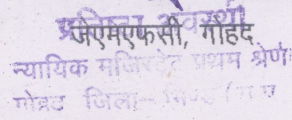 प्रतिष्ठा अवस्थी
जेएमएफसी, गोहद
न्यायिक मजिस्ट्रेट प्रथम श्रेणी
गोहद जिला- भिण्ड (म.प्र